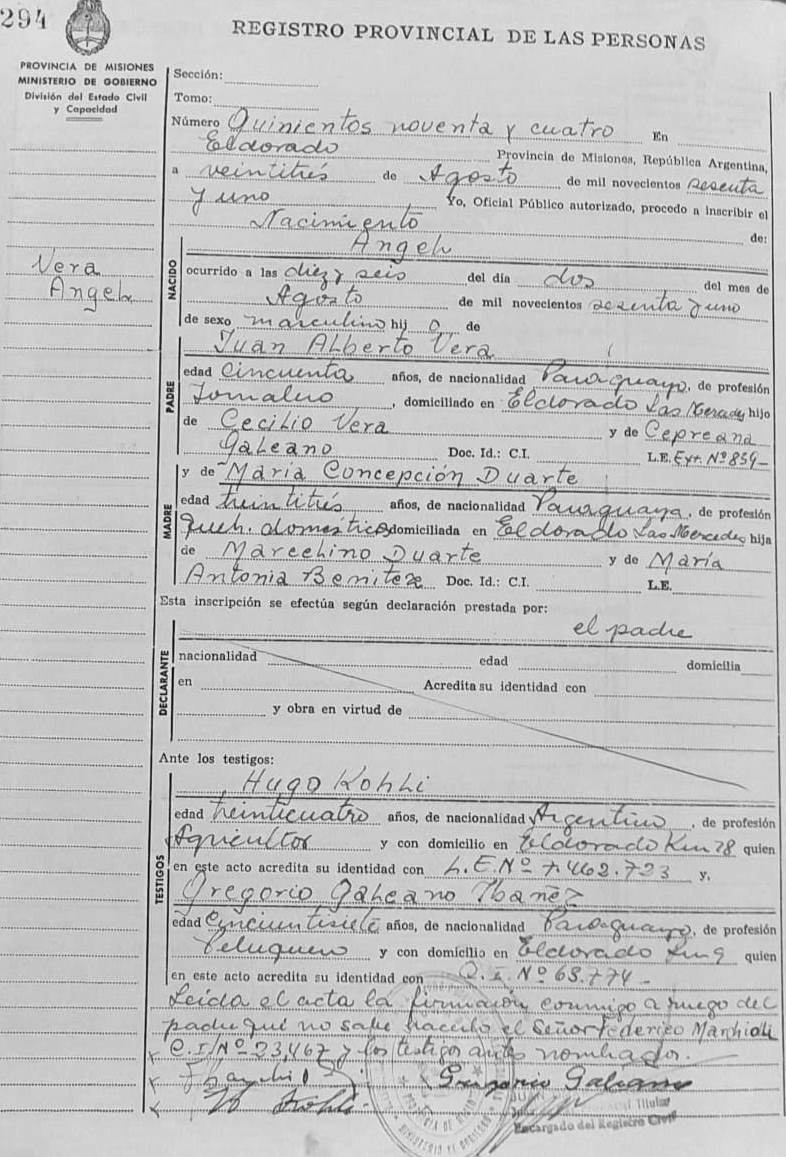 294
REGISTRO PROVINCIAL DE LAS PERSONAS
PROVINCIA DE MISIONES
MINISTERIO DE GOBIERNO
División del Estado Civil
y Capacidad
Sección:
Tomo:
Número Quinientos noventa y cuatro En
Eldorado Provincia de Misiones, República Argentina,
a veintitrés de Agosto de mil novecientos sesenta
y uno Yo, Oficial Público autorizado, procedo a inscribir el
Nacimiento de:
Angel
Vera
Angel
NACIDO
ocurrido a las diez y seis del día dos del mes de
Agosto de mil novecientos sesenta y uno
de sexo masculino hij o de
Juan Alberto Vera
PADRE
edad Cincuenta años, de nacionalidad Paraguayo, de profesión
Jornalero, domiciliado en Eldorado Las Mercedes hijo
de Cecilio Vera y de Cepreana
Galeano Doc. Id.: C.I. L.E. Ext. Nº 839-
y de María Concepción Duarte
MADRE
edad treintitrés años, de nacionalidad Paraguaya, de profesión
Queh. domésticos domiciliada en Eldorado Las Mercedes hija
de Marcelino Duarte y de María
Antonia Benitez Doc. Id.: C.I. L.E.
Esta inscripción se efectúa según declaración prestada por:
el padre
DECLARANTE
nacionalidad edad domicilia
en Acredita su identidad con
y obra en virtud de
Ante los testigos:
Hugo Kohli
TESTIGOS
edad treinticuatro años, de nacionalidad Argentino, de profesión
Agricultor y con domicilio en Eldorado Km 28 quien
en este acto acredita su identidad con L.E. Nº 7.462.723 y,
Gregorio Galeano Ibañez
edad Cincuentisiete años, de nacionalidad Paraguayo, de profesión
Peluquero y con domicilio en Eldorado Km 9 quien
en este acto acredita su identidad con C.I. Nº 68.774-
Leída el acta la firmarón conmigo a ruego del
padre qué no sabe hacerlo el Señor Federico Marchioli
C.I. Nº 23,467 y los testigos antes nombrados.
Gregorio Galeano
H Kohli
Titular
Encargado del Registro Civil